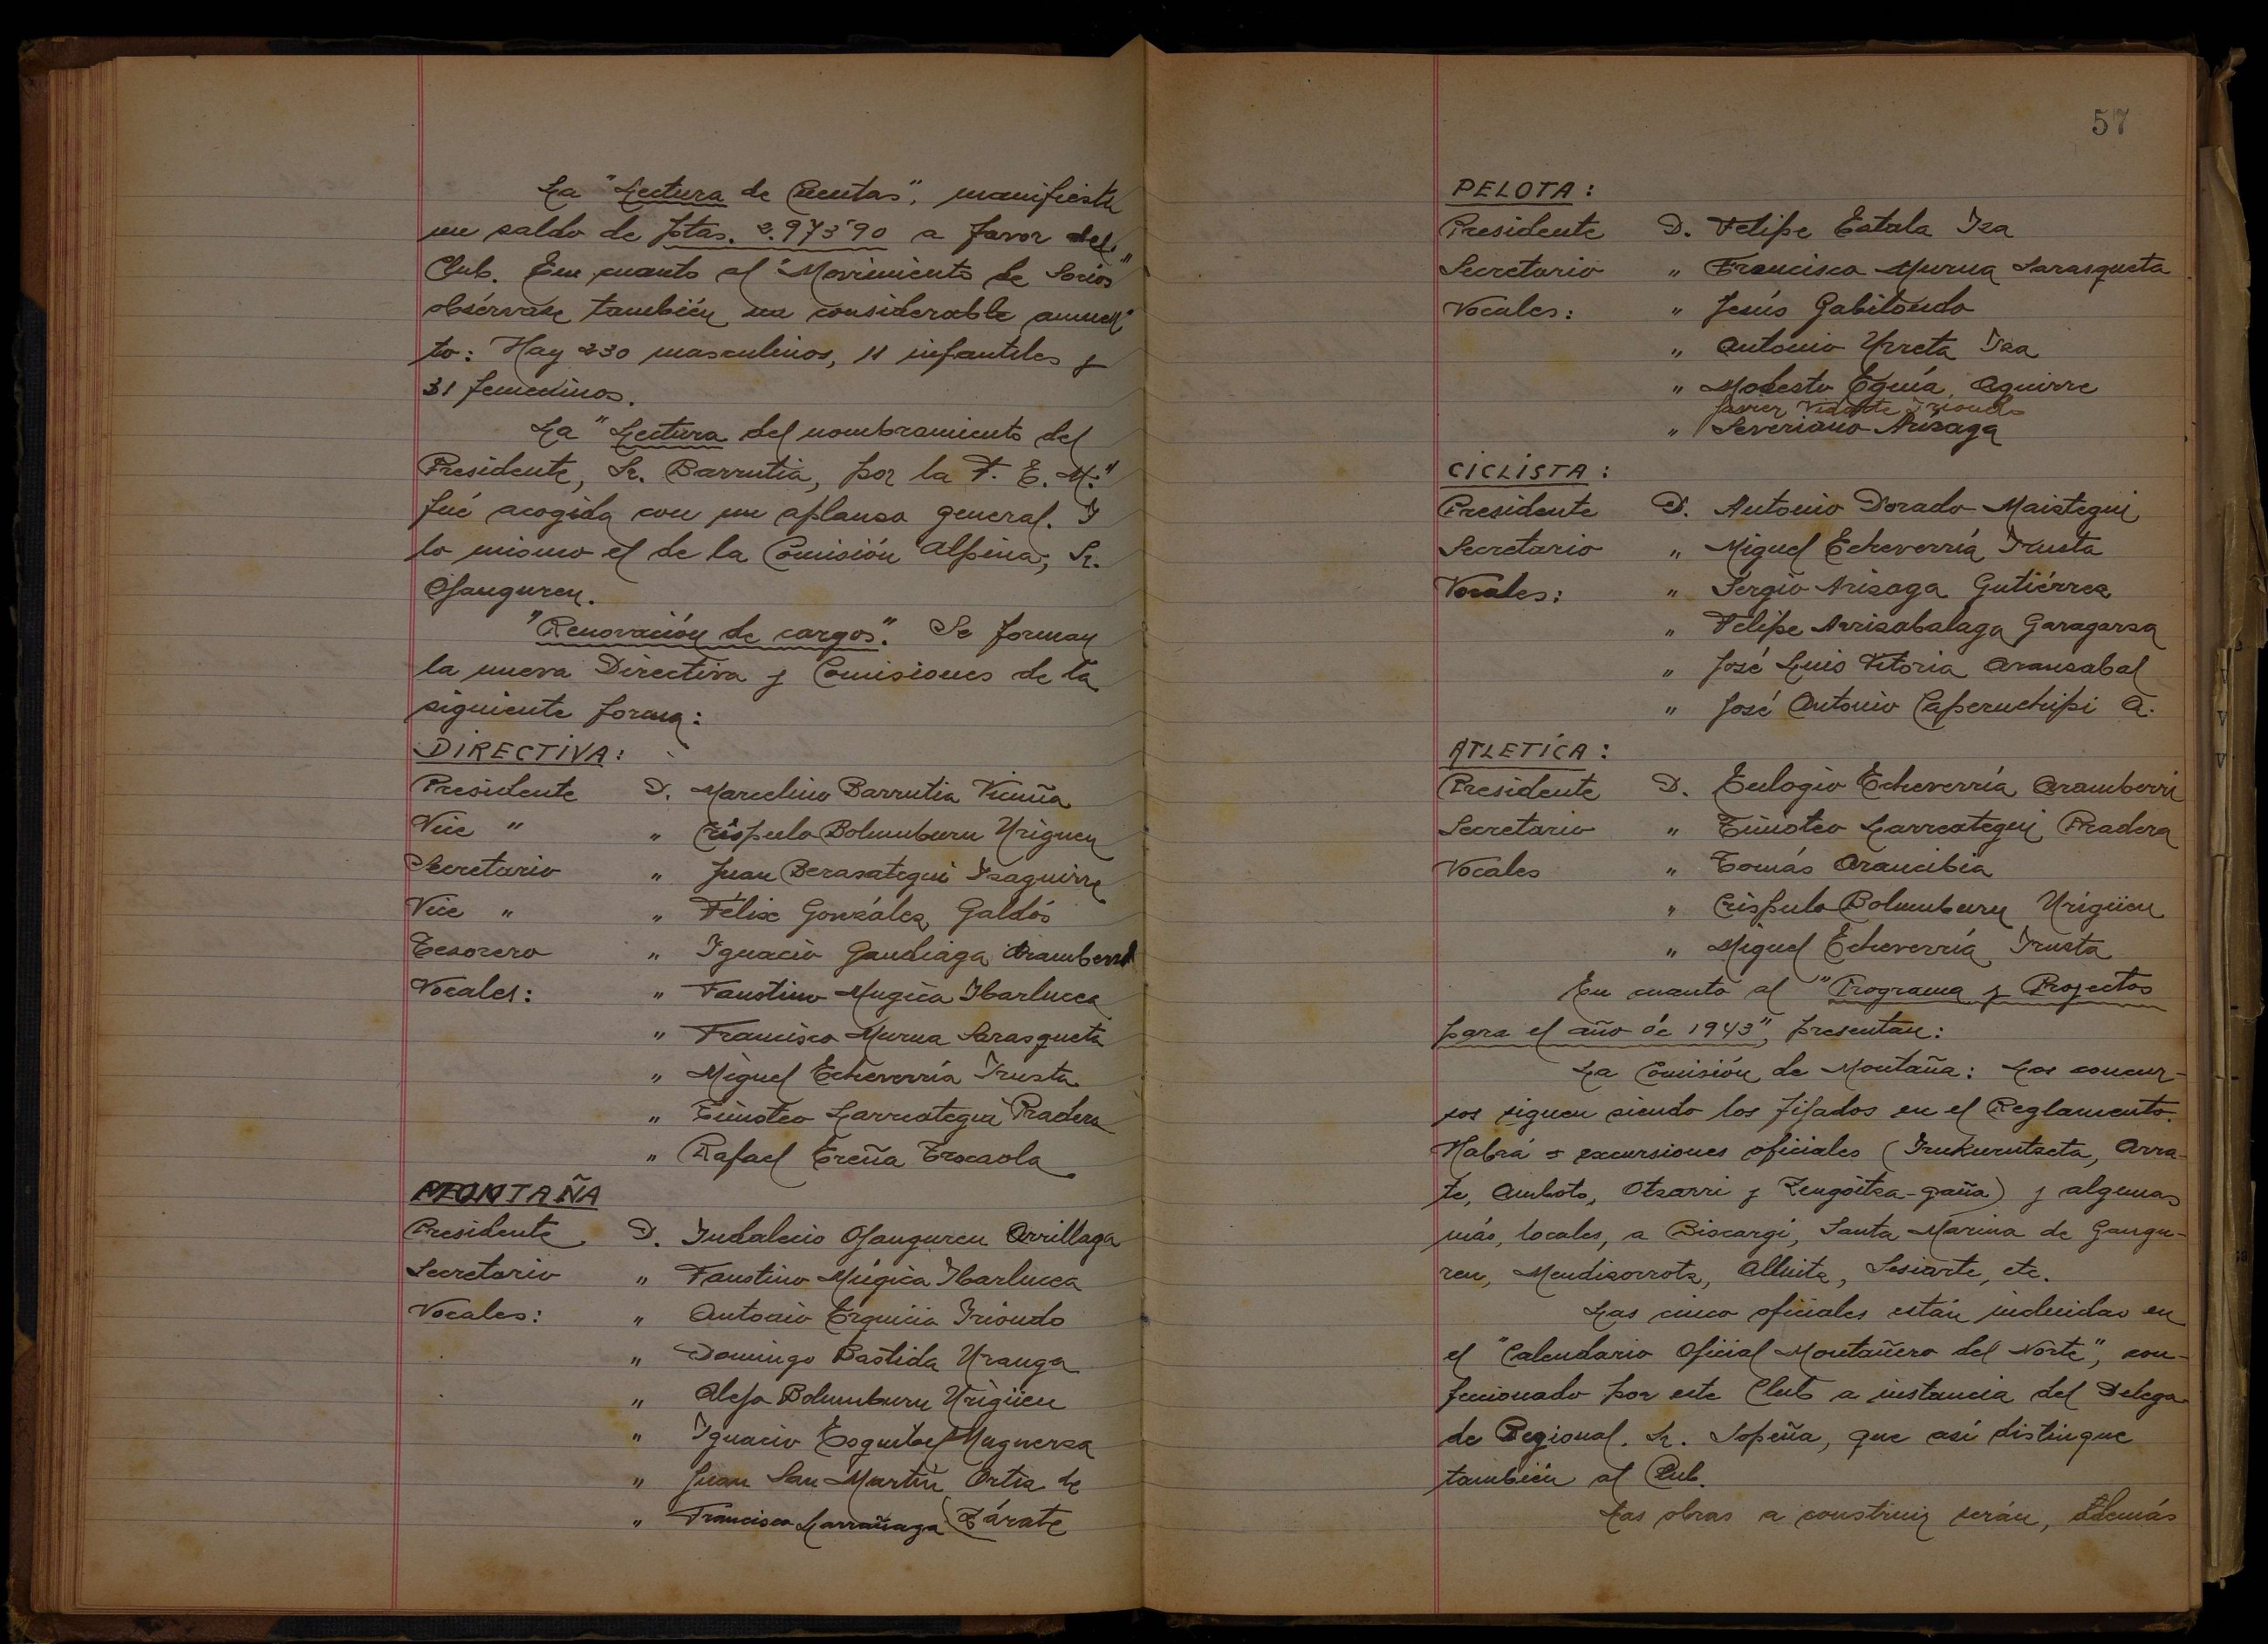 La "Lectura de Cuentas", manifiesta
un saldo de ptas. 2.973'90 a favor del
Club. En cuanto al "Movimiento de Socios"
obsérvase también un considerable aumen-
to: Hay 230 masculinos, 11 infantiles y
31 femeninos.
La "Lectura del nombramiento del
Presidente, Sr. Barrutia, por la F. E. M."
fué acogida con un aplauso general. Y
lo mismo el de la Comisión Alpina, Sr.
Ojanguren.
"Renovación de cargos". Se forman
la nueva Directiva y Comisiones de la
siguiente forma:
DIRECTIVA:
Presidente D. Marcelino Barrutia Vicuña
Vice " " Críspulo Bolumburu Uriguen
Secretario " Juan Berasategui Izaguirre
Vice " " Félix González Galdós
Tesorero " Ignacio Gandiaga Aramberri
Vocales: " Faustino Mugica Ibarlucea
" Francisco Murua Sarasqueta
" Miguel Echeverría Irusta
" Timoteo Larreategui Pradera
" Rafael Ereña Trocaola
MONTAÑA
Presidente D. Indalecio Ojanguren Arrillaga
Secretario " Faustino Múgica Ibarlucea
Vocales: " Antonio Erquicia Iriondo
" Domingo Bastida Uranga
" Alejo Bolumburu Urigüen
" Ignacio Esquibel Muguerza
" Juan San Martín Ortiz de
" Francisco Larrañaga (Zárate
57
PELOTA:
Presidente D. Felipe Estala Iza
Secretario " Francisco Murua Sarasqueta
Vocales: " Jesús Gabilondo
" Antonio Urreta Iza
" Modesto Eguía Aguirre
Javier Vidarte Iriondo
" Severiano Arizaga
CICLISTA:
Presidente D. Antonio Dorado Maiztegui
Secretario " Miguel Echeverría Irusta
Vocales: " Sergio Arizaga Gutiérrez
" Felipe Arrizabalaga Garagarza
" José Luis Vitoria Aranzabal
" José Antonio Caperuchipi A.
ATLETICA:
Presidente D. Eulogio Echeverría Aramberri
Secretario " Timoteo Larreategui Pradera
Vocales " Tomás Arancibia
" Críspulo Bolumburu Urigüen
" Miguel Echeverría Irusta
En cuanto al "Programa y Proyectos
para el año de 1943", presentan:
La Comisión de Montaña: Los concur-
sos siguen siendo los fijados en el Reglamento.
Habrá 5 excursiones oficiales (Irukurutzeta, Arra-
te, Amboto, Otzarri y Kengoitza-gaña) y algunas
más, locales, a Biscargi, Santa Marina de Gangu-
ren, Mendizorrotz, Alluitz, Sesiarte, etc.
Las cinco oficiales están incluidas en
el "Calendario Oficial Montañero del Norte", con-
feccionado por este Club a instancia del Delega-
do Regional. Sr. Sopeña, que así distingue
también al Club.
Las obras a construir serán, además